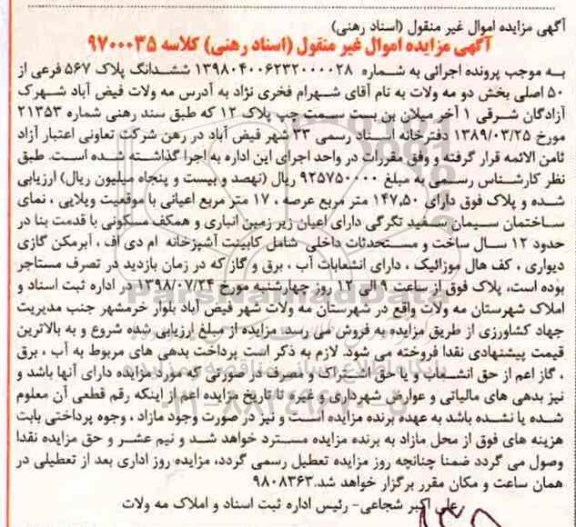 آگهی مزایده اموال غیر منقول (اسناد رهنی)
آگهی مزایده اموال غیر منقول (اسناد رهنی) کلاسه ۹۷۰۰۰۳۵
به موجب پرونده اجرائی به شماره ۱۳۹۸۰۴۰۰۶۲۳۲۰۰۰۰۲۸ ششدانگ پلاک ۵۶۷ فرعی از
۵۰ اصلی بخش دو مه ولات به نام آقای شهرام فخری نژاد به آدرس مه ولات فیض آباد شهرک
آزادگان شرقی ۱ آخر میلان بن بست سمت چپ پلاک ۱۲ که طبق سند رهنی شماره ۲۱۳۵۳
مورخ ۱۳۸۹/۰۳/۲۵ دفترخانه اسناد رسمی ۳۳ شهر فیض آباد در رهن شرکت تعاونی اعتبار آزاد
ثامن الائمه قرار گرفته و وفق مقررات در واحد اجرای این اداره به اجرا گذاشته شده است. طبق
نظر کارشناس رسمی به مبلغ ۹۲۵۷۵۰۰۰۰ ریال (نهصد و بیست و پنجاه میلیون ریال) ارزیابی
شده و پلاک فوق دارای ۱۴۷,۵۰ متر مربع عرصه ، ۱۷ متر مربع اعیانی با موقعیت ویلایی ، نمای
ساختمان سیمان سفید تگرگی دارای اعیان زیر زمین انباری و همکف مسکونی با قدمت بنا در
حدود ۱۲ سال ساخت و مستحدثات داخلی شامل کابینت آشپزخانه ام دی اف ، آبرمکن گازی
دیواری ، کف هال موزائیک ، دارای انشعابات آب ، برق و گاز که در زمان بازدید در تصرف مستاجر
بوده است، پلاک فوق از ساعت ۹ الی ۱۲ روز چهارشنبه مورخ ۱۳۹۸/۰۷/۲۴ در اداره ثبت اسناد و
املاک شهرستان مه ولات واقع در شهرستان مه ولات شهر فیض آباد بلوار خرمشهر جنب مدیریت
جهاد کشاورزی از طریق مزایده به فروش می رسد. مزایده از مبلغ ارزیابی شده شروع و به بالاترین
قیمت پیشنهادی نقدا فروخته می شود. لازم به ذکر است پرداخت بدهی های مربوط به آب ، برق
، گاز اعم از حق انشعاب و یا حق اشتراک و مصرف در صورتی که مورد مزایده دارای آنها باشد و
نیز بدهی های مالیاتی و عوارض شهرداری و غیره تا تاریخ مزایده اعم از اینکه رقم قطعی آن معلوم
شده یا نشده باشد به عهده برنده مزایده است و نیز در صورت وجود مازاد ، وجوه پرداختی بابت
هزینه های فوق از محل مازاد به برنده مزایده مسترد خواهد شد و نیم عشر و حق مزایده نقدا
وصول می گردد ضمنا چنانچه روز مزایده تعطیل رسمی گردد، مزایده روز اداری بعد از تعطیلی در
همان ساعت و مکان مقرر برگزار خواهد شد.۹۸۰۸۳۶۳
علی اکبر شجاعی- رئیس اداره ثبت اسناد و املاک مه ولات